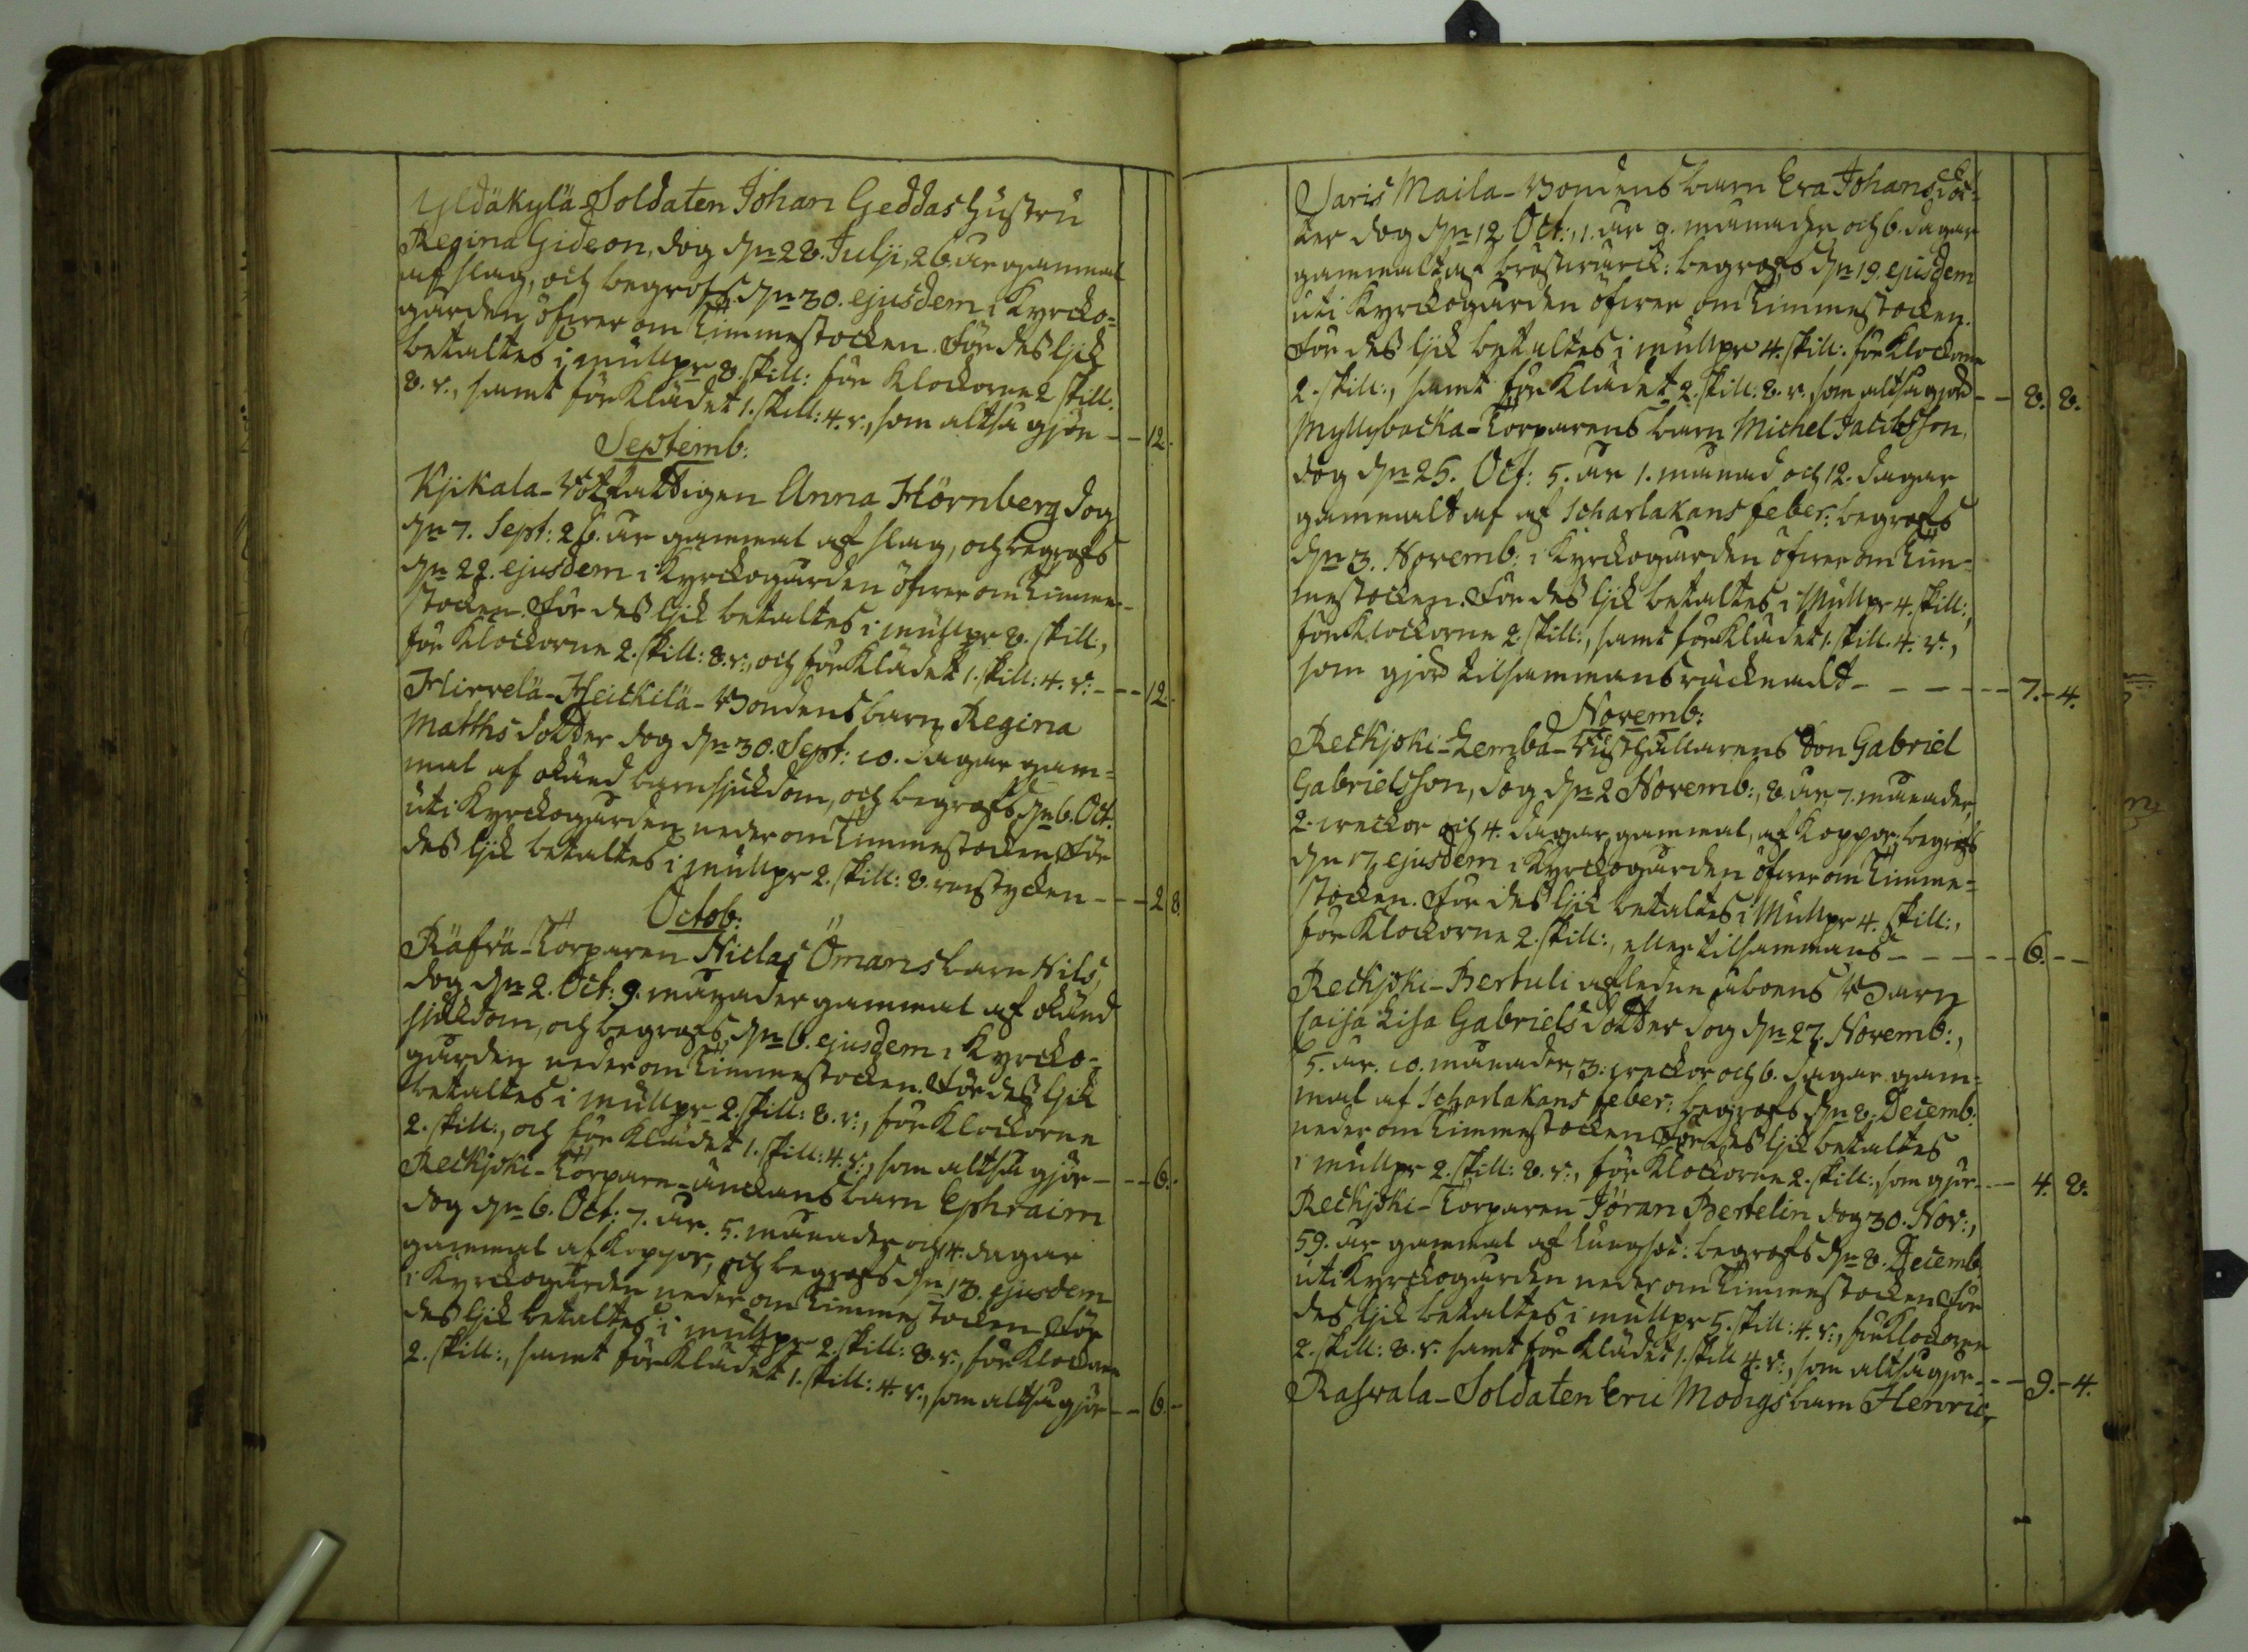 Yldäkylä Soldaten Johan Geddas hustru
Regina Gideon, dog dn 28. Julji, 26. år gammal
af slag, och begrofs dn 30. ejusdem i Kyrcko-
gården öfwer om Timmestocken. För des lijk
betaltes i mullpr 8. skill: för Klockorne 2 skill:
8. r., samt för Klädet 1. skill: 4. r., som altså gjör - - 12.
Septemb:
Kjikala- Anna Hörnberg dog
dn 7. Sept: år gammal af slag, och begrofs
dn 22. ejusdem i Kyrckogården öfwer om Timme-
stocken. För des lijk betaltes i mullpr 8. skill:,
för Klockorne 2. skill: 8. r:, och för Klädet 1. skill: 4. r: - - - 12.
Hirvelä-Heickilä-Bondens barn Regina
Matthsdotter dog dn 30. Sept: 10. dagar gam-
mal af okänd barnsjukdom, och begrofs dn 6. Oct.
uti Kyrckogården neder om Timmestocken. För
des lijk betaltes i mullpr 2. skill: 8. runstycken - - - 2 8.
Octob:
Räfvä-Torparen Niclas Ömans barn Nils,
dog dn 2. Oct: 9. månader gammal af okänd
sjukdom, och begrofs dn 6. ejusdem i Kyrcko-
gården neder om Timmestocken. För des lijk
betaltes i mullpr 2. skill: 8. r:, för Klockorne
2. skill:, och för Klädet 1. skill: 4. r:, som altså gjör - - - 6.
Reckjoki-Torpare-änckans barn Ephraim
dog dn 6. Oct: 7. år. 5. månader och 4. dagar
gammal af Koppor, och begrofs dn 13. ejusdem
i Kyrckogården neder om Timmestocken. För
des lijk betaltes i mullpr 2. skill: 8. r., för Klockorne
2. skill:, samt för Klädet 1. skill: 4. r., som altså gjör - - 6. -
Saris Maila-Bondens barn Eva Johansdot-
ter dog dn 12 Oct:, 1. år 9. månader och 6. dagar
gammalt af bröstwärck: begrofs dn 19. ejusdem
uti Kyrckogården öfwer om Timmestocken.
För des lijk betaltes i mullpr 4. skill: för Klockorne
2. skill:, samt för Klädet 2. skill: 8. r., som altså gjör - - 8. 8.
Myllybacka-Torparens barn Michel Jacobsson,
dog dn 25. Oct: 5. år 1. månad och 12. dagar
gammalt af af Scharlakans feber: begrofs
dn 3. Novemb: i Kyrckogården öfwer om Tim-
mestocken. För des lijk betaltes i Mullpr 4. skill:,
för Klockorne 2. skill:, samt för Klädet 1. skill. 4. r:,
som gjör tilsammans räcknadt - - - - - 7. - 4.
Novemb:
Reckjoki-Zemba-Rusthållarens Son Gabriel
Gabrielsson, dog dn 2 Novemb:, 8. år, 7. månader,
2. weckor och 4. dagar, gammal, af Koppor, begrofs
dn 17. ejusdem i Kyrckogården öfwer om Timme-
stocken. För des lijk betaltes i Mullpr 4. skill:,
för Klockorne 2. skill:, eller tilsammans - - - - - 6. - -
Reckjoki-Bertuli afledne åboens Barn
Caisa Lisa Gabrielsdotter dog dn 27. Novemb:,
5. år. 10. månader, 3. weckor och 6. dagar gam-
mal af Scharlakans feber: begrofs dn 8. Decemb:
neder om Timmestocken. För des lijk betaltes
i mullpr 2. skill: 8. r:, för Klockorne 2. skill:, som gjör - - - 4. 8.
Reckjoki-Torparen Jöran Bertelin dog 30. Nov:,
59. år gammal af Lungsot: begrofs dn 8. Decemb:
uti Kyrckogården neder om Timmestocken. För
des lijk betaltes i mullpr 5. skill: 4. r:, för Klockorne
2. skill: 8. r. samt för Klädet 1. skill 4. r:, som altså gjör - - - 9. - 4.
Raswala-Soldaten Eric Modigs barn Henric,